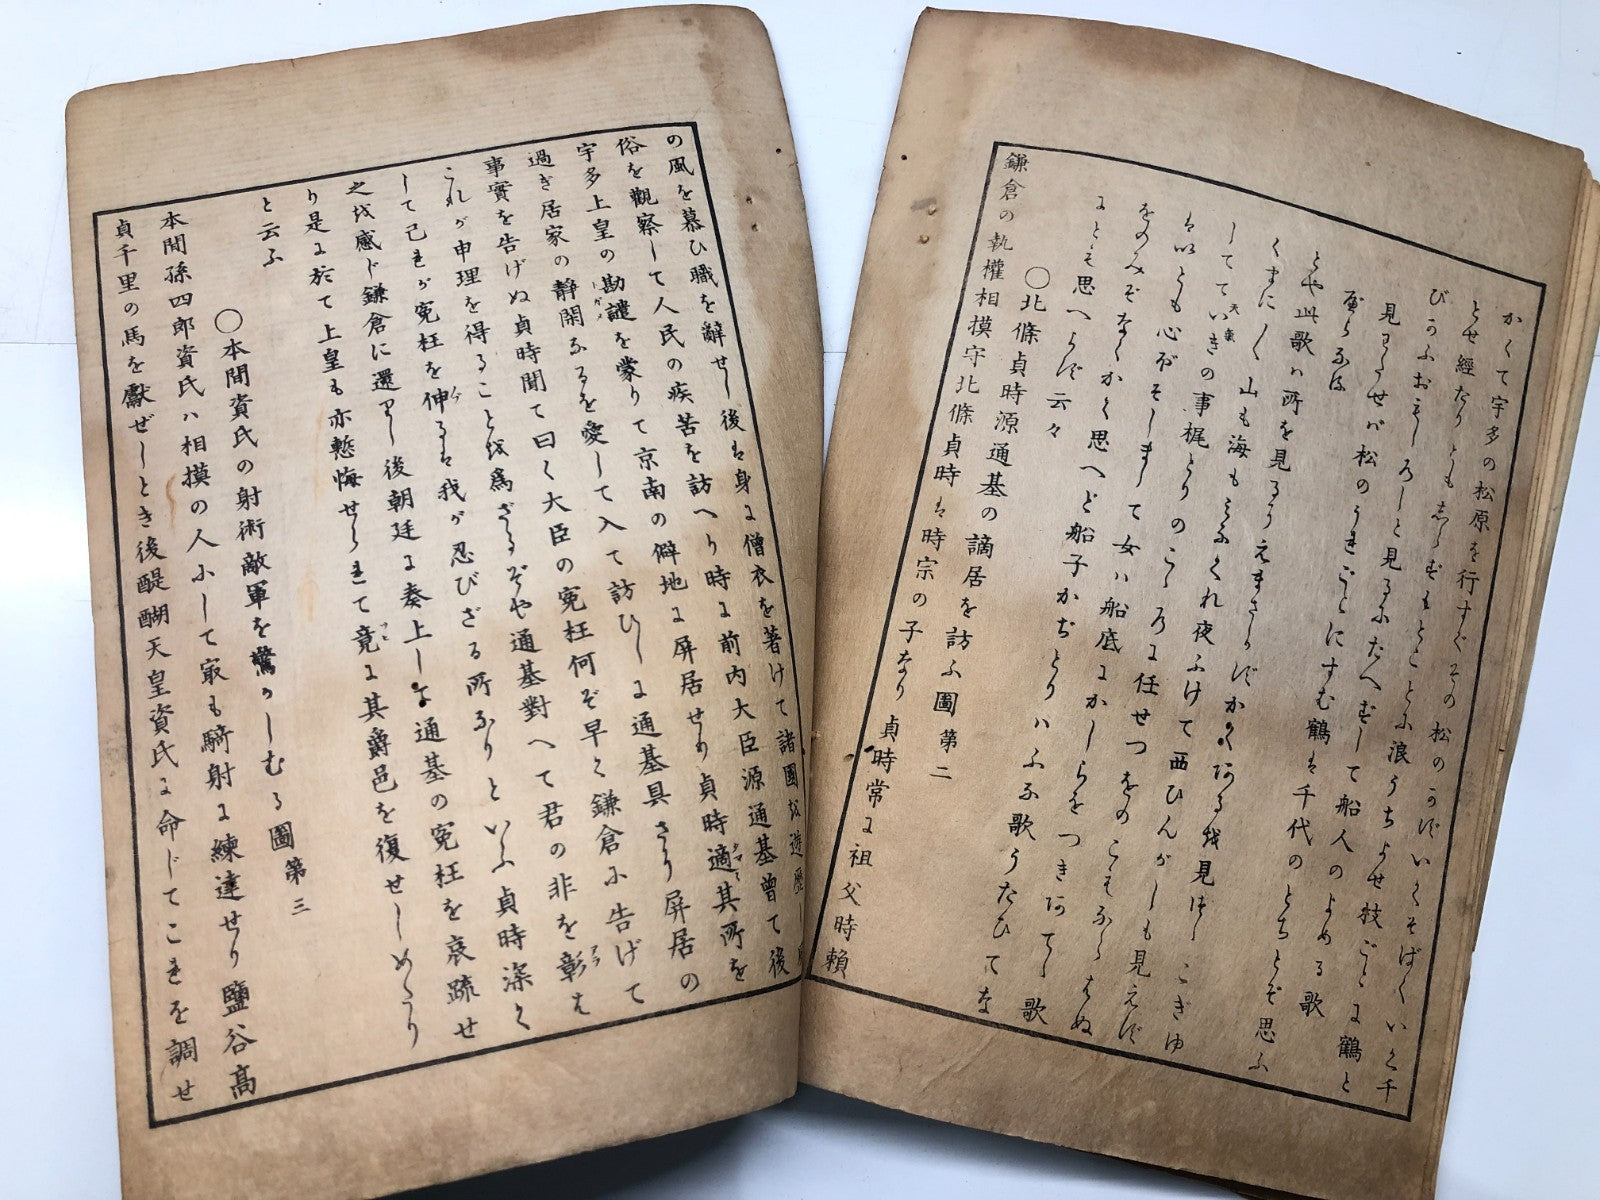 かくて宇多の松原を行すぐその松のかずいくそばくいく千
とせ經たりとせ
びかふおもしろしと見るふたへずして船人のよめる歌
見わたせバ松のうれごとにすむ鶴は千代のとちとぞ思ふ
とや此歌ハ所を見るにえまさらず
くまにしく山も海もみなくれ夜ふけて西ひんがしも見えず
して
天氣
の事梶とりのこゝろに任せつをのこもならはぬ
をのみぞなくかく思へど船子かぢとりハふな歌うたひてな
にとも思へらず云々
〇北條貞時源通基の謫居を訪ふ圖第二
鎌倉の執權相摸守北條貞時は時宗の子なり貞時常に祖父時賴
の風を慕ひ職を辭せし後は身に僧衣を著けて諸國を遊歷し
俗を觀察して人民の疾苦を訪へり時に前内大臣源通基曾て後
宇多上皇の勘譴を蒙りて京南の僻地に屏居せり貞時適其所を
過ぎ居家の靜閑なるを愛して入て訪ひしに通基具さに屏居の
事實を告げぬ貞時聞て曰く大臣の寃枉何ぞ早く鎌倉に告げて
これが申理を得ることを爲さゞるぞや通基對へて君の非を彰は
して己れが寃枉を伸るは我が忍びざる所なりといふ貞時深く
之を感じ鎌倉に還りし後朝廷に奏上して通基の寃枉を哀疏せ
り是に於て上皇も亦慙悔せられて竟に其爵邑を復せしめたり
と云ふ
〇本間資氏の射術敵軍を驚かしむる圖第三
本間孫四郎資氏ハ相摸の人にして㝡も騎射に練達せり鹽谷高
貞千里の馬を獻ぜしとき後醍醐天皇資氏に命じてこれを調せ